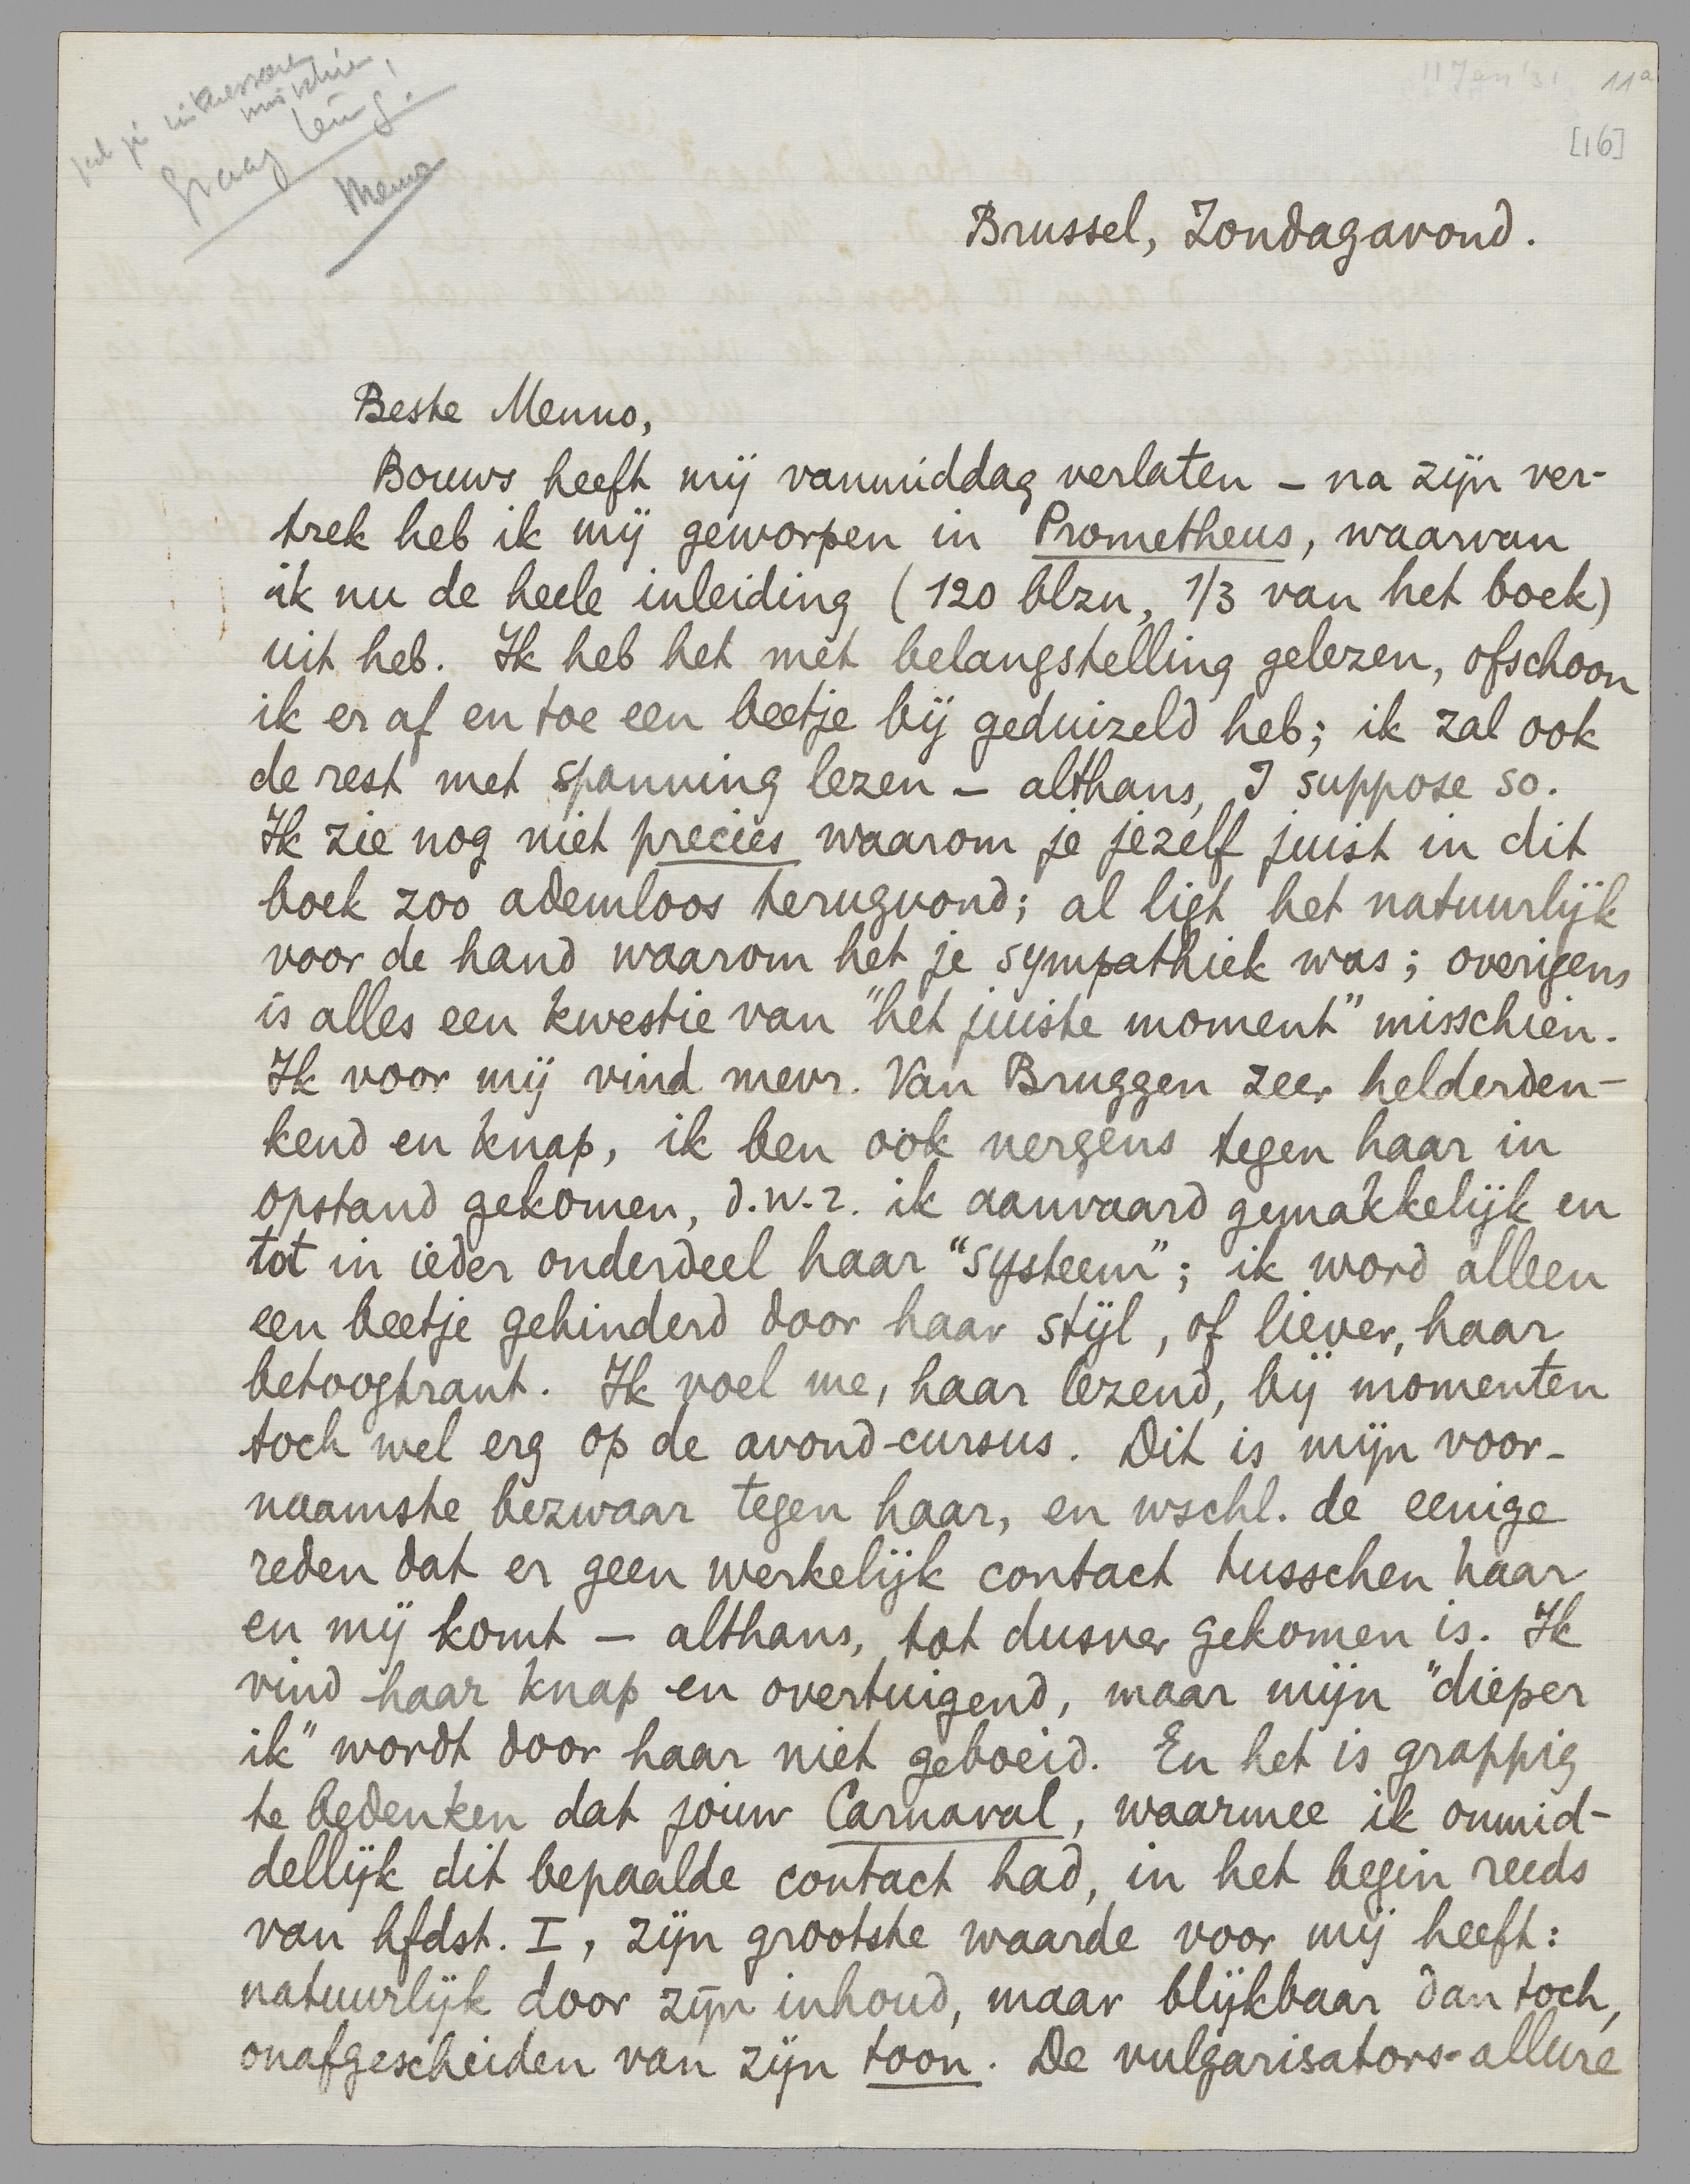 zal je interesseren
misschien,
graag terug.
Menno
11 Jan '31. 11a
[16]
Brussel, Zondagavond.
Beste Menno,
Bouws heeft mij vanmiddag verlaten – na zijn ver-
trek heb ik mij geworpen in Prometheus, waarvan
ik nu de heele inleiding (120 blzn, 1/3 van het boek)
uit heb. Ik heb het met belangstelling gelezen, ofschoon
ik er af en toe een beetje bij geduizeld heb; ik zal ook
de rest met spanning lezen – althans, I suppose so.
Ik zie nog niet precies waarom je jezelf juist in dit
boek zoo ademloos terugvond; al ligt het natuurlijk
voor de hand waarom het je sympathiek was; overigens
is alles een kwestie van "het juiste moment" misschien.
Ik voor mij vind mevr. Van Bruggen zeer helderden-
kend en knap, ik ben ook nergens tegen haar in
opstand gekomen, d.w.z. ik aanvaard gemakkelijk en
tot in ieder onderdeel haar "systeem"; ik word alleen
een beetje gehinderd door haar stijl, of liever, haar
betoogtrant. Ik voel me, haar lezend, bij momenten
toch wel erg op de avond-cursus. Dit is mijn voor-
naamste bezwaar tegen haar, en wschl. de eenige
reden dat er geen werkelijk contact tusschen haar
en mij komt – althans, tot dusver gekomen is. Ik
vind haar knap en overtuigend, maar mijn "dieper
ik" wordt door haar niet geboeid. En het is grappig
te bedenken dat jouw Carnaval, waarmee ik onmid-
dellijk dit bepaalde contact had, in het begin reeds
van hfdst. I, zijn grootste waarde voor mij heeft:
natuurlijk door zijn inhoud, maar blijkbaar dan toch,
onafgescheiden van zijn toon. De vulgarisators-allure